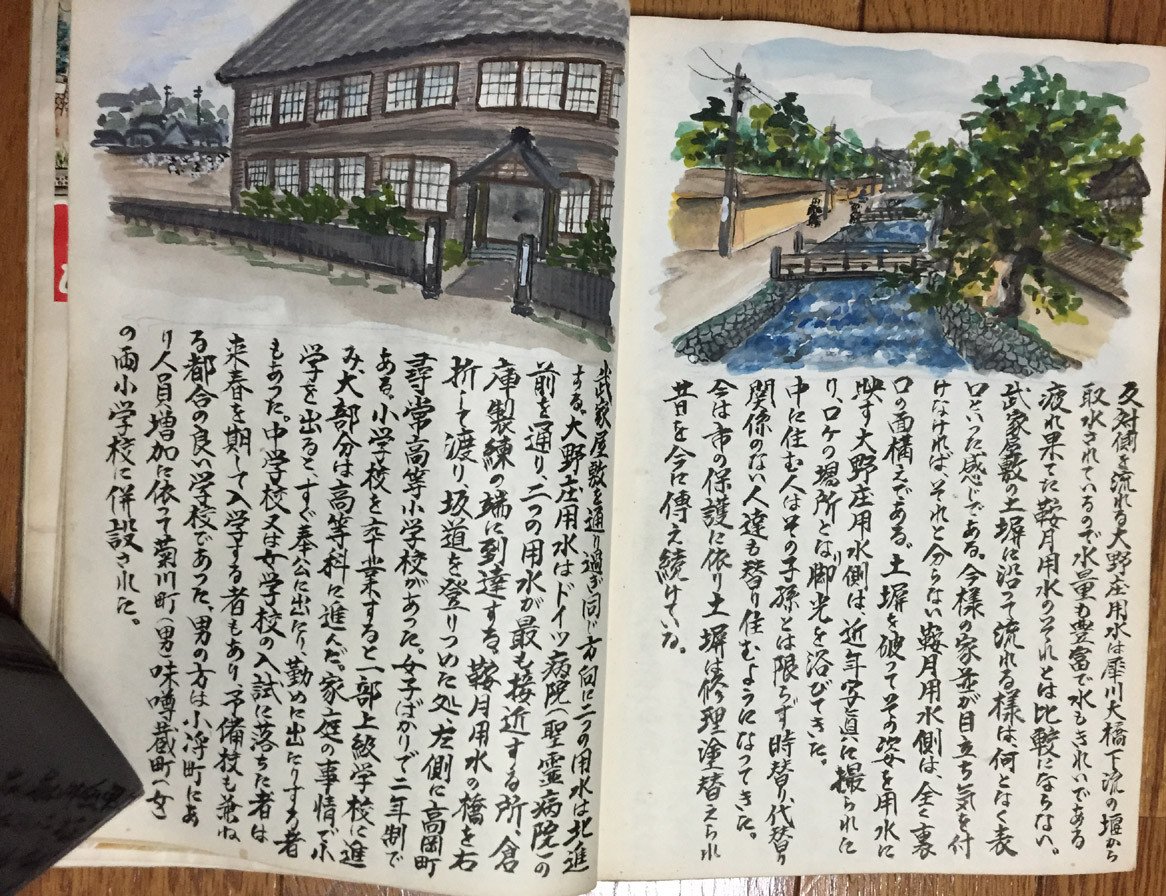 反対側を流れる大野庄用水は犀川大橋下流の堰から
取水されているので水量も豊富で水もきれいである
疲れ果てた鞍月用水のそれとは比較にならない。
武家屋敷の土塀に沿って流れる様は、何となく表
口といった感じである。今様の家並が目立ち気を付
けなければそれと分らない鞍月用水側は、全く裏
口の面構えである。土塀を破ってその姿を用水に
映す大野庄用水側は、近年写真に撮られた
り、ロケの場所とな脚光を浴びてきた。
中に住む人はその子孫とは限らず時替り代替り
関係のない人達も替り住むようになってきた。
今は市の保護に依り土塀は修理塗替えられ
昔日を今に傳え続けている。
武家屋敷を通り過ぎ同じ方向に二つの用水は北進
する。大野庄用水はドイツ病院(聖霊病院)の
前を通り、二つの用水が最も接近する所、倉
庫製練の端に到達する。鞍月用水の橋を右
折して渡り、坂道を登りつめた処、左側に高岡町
尋常高等小学校があった。女子ばかりで二年制で
ある。小学校を卒業すると一部上級学校に進
み大部分は高等科に進んだ。家庭の事情で小
学を出るとすぐ奉公に出たり、勤めに出たりする者
もあった。中学校又は女学校の入試に落ちた者は
来春を期して入学する者もあり予備校も兼ね
る都合の良い学校であった。男の方は小浮町にあ
り人員増加に依って菊川町(男)味噌蔵町(女)
の両小学校に併設された。